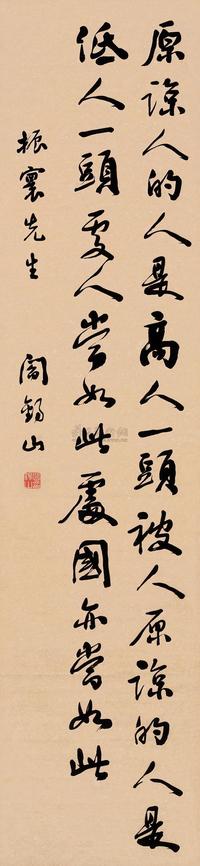 原諒人的人是高人一頭被人原諒的人是
低人一頭處人當如此處國亦當如此
振寰先生
閻錫山